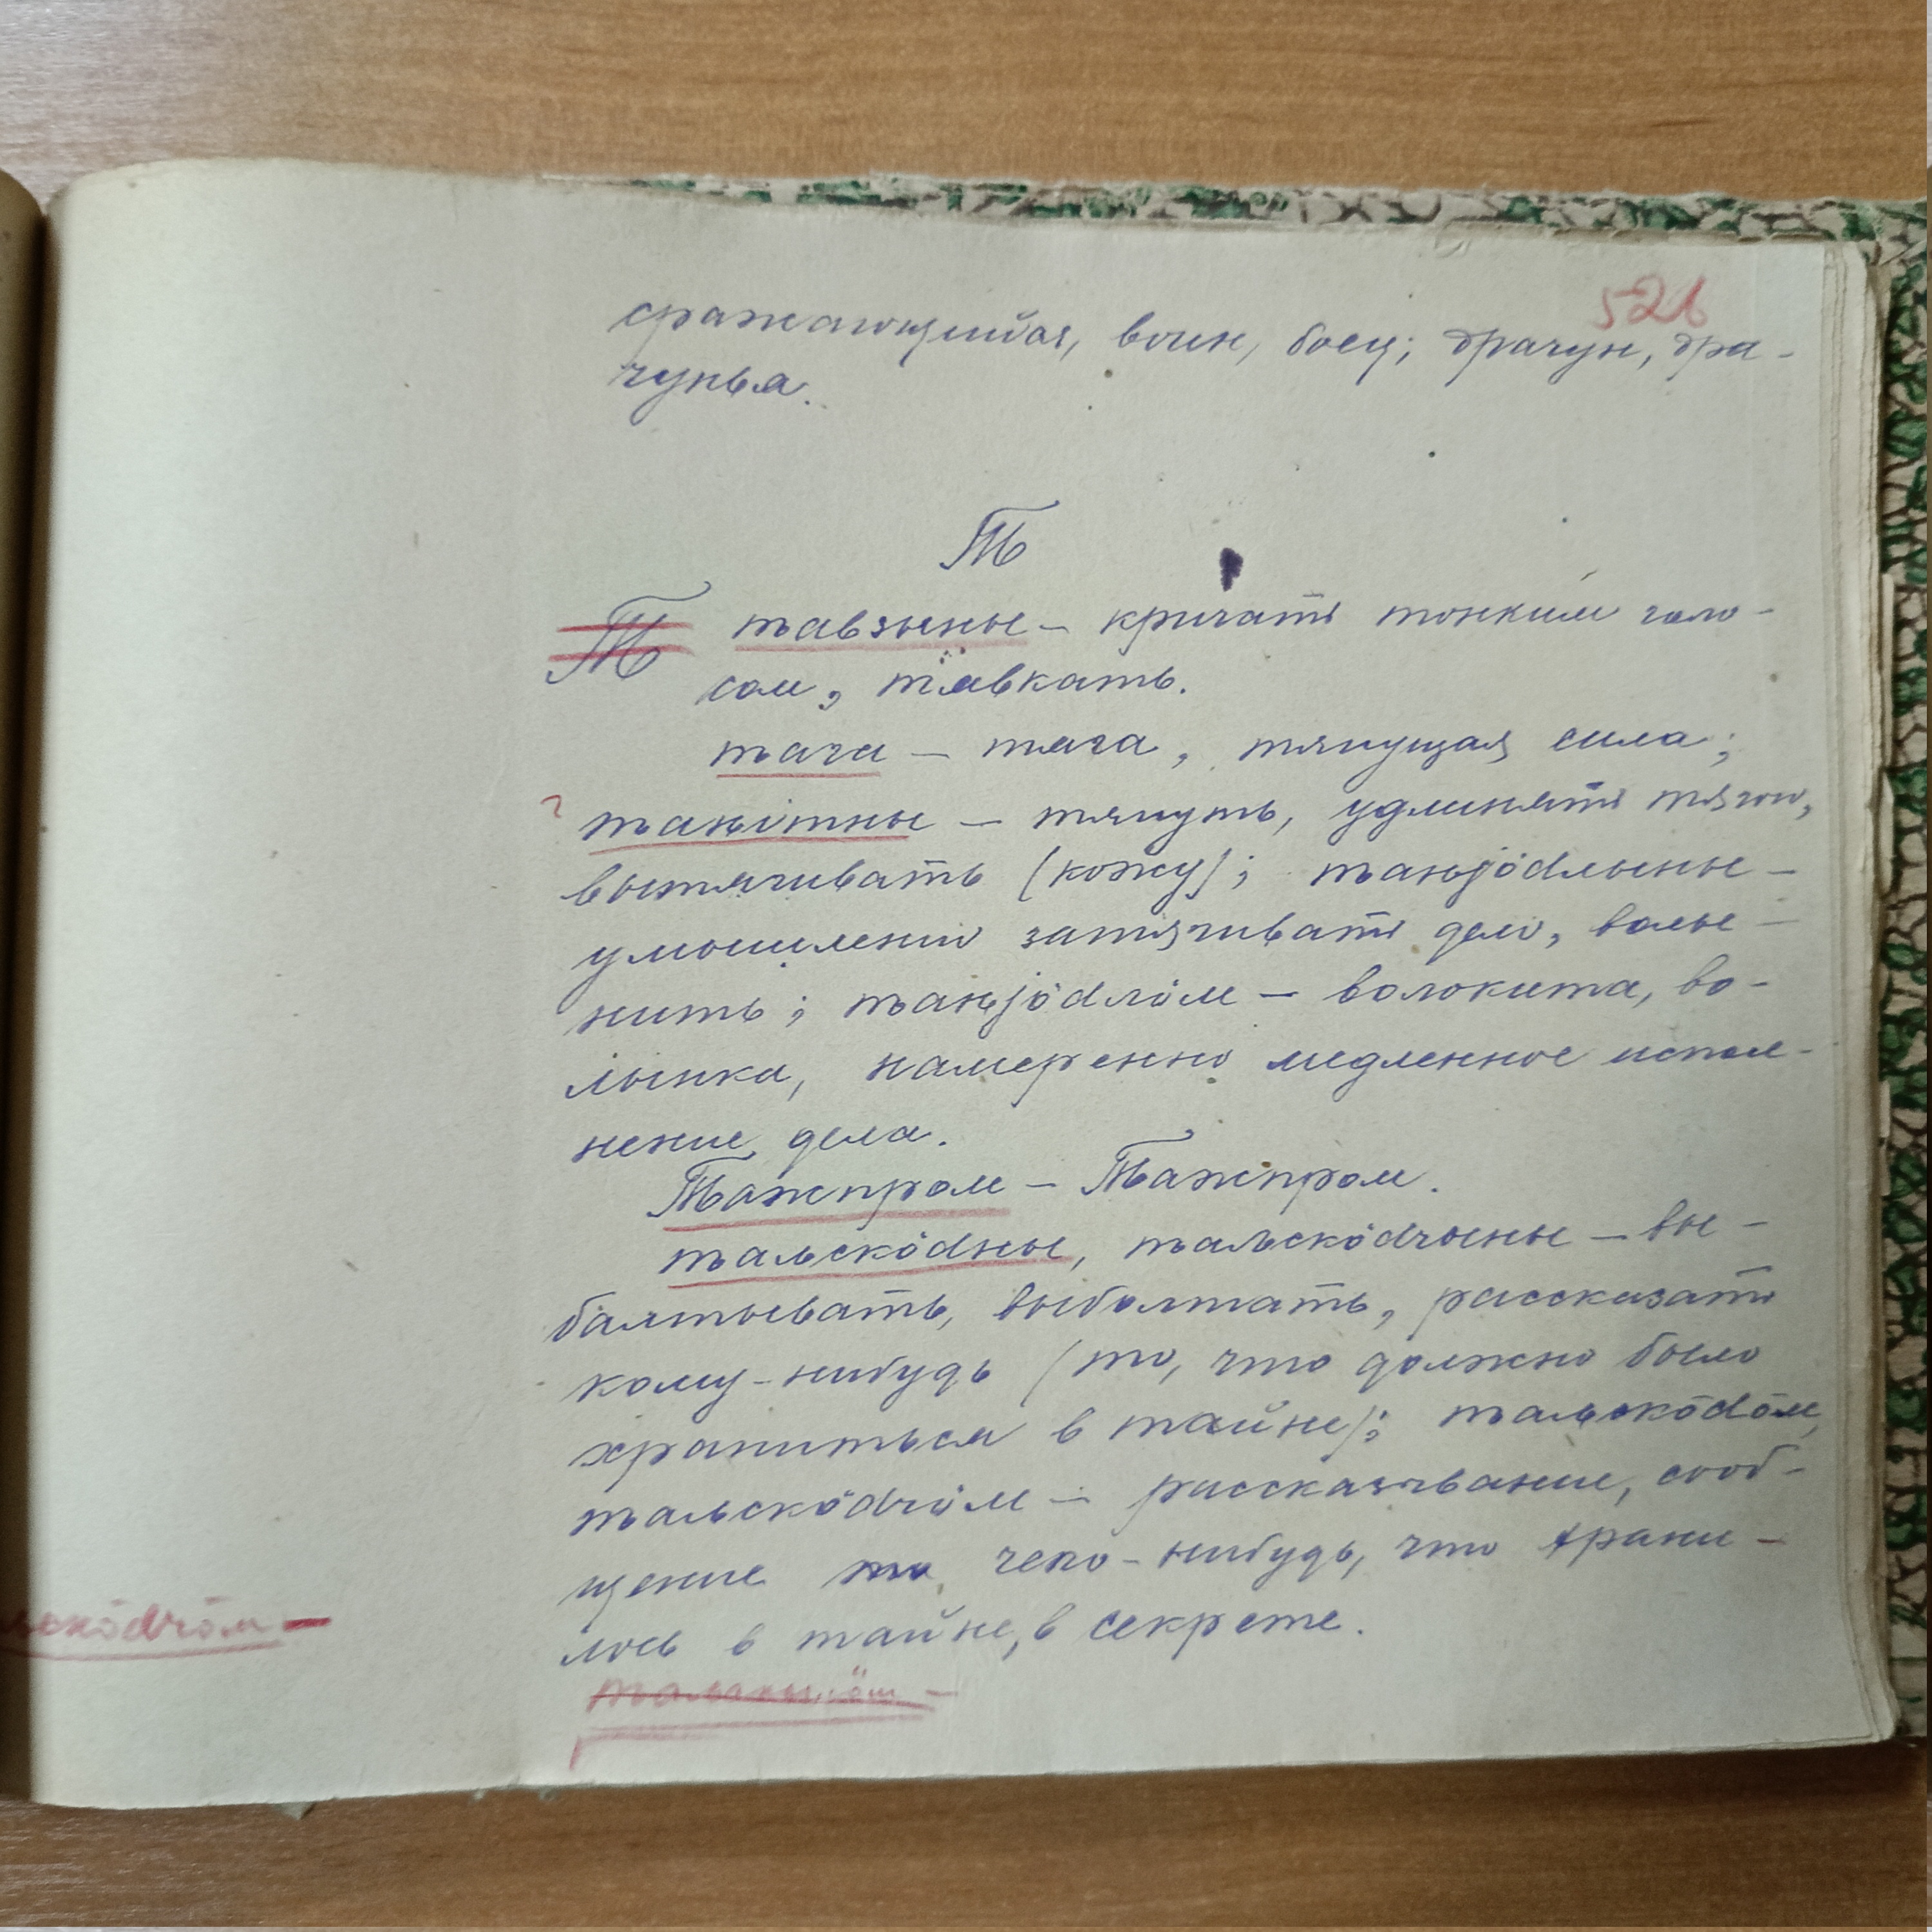 521
сражающийся, воин, боец; драчун, дра-
чунья.
Ԏ
Ԏ ԏавзыны – кричать тонким голо-
сом, тявкать.
ԏага – тяга, тянущая сила;
? ԏаԋітны – тянуть, удлинять тягой,
вытягивать (кожу); ԏаԋјӧdлыны –
умышленно затягивать дело, волы-
нить; ԏаԋјӧdлӧм – волокита, во-
лынка, намеренно медленное испол-
нение дела.
Ԏажпром – Тажпром.
ԏаԉскӧdны, ԏаԉскӧdчыны – вы-
балтывать, выболтать, рассказать
кому-нибудь (то, что должно было
храниться в тайне); ԏаԉскӧdӧм,
ԏаԉскӧdчӧм – рассказывание, сооб-
щение чего-нибудь, что храни-
лось в тайне, в секрете.